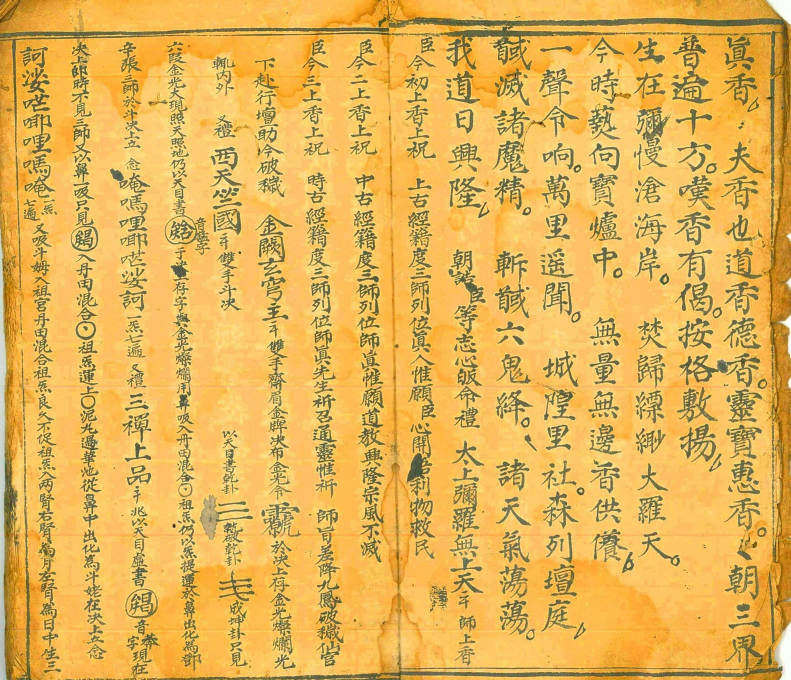 真香。夫香也道香德香。靈寶惠香。朝三界
普遍十方。嘆香有偈。按格敷揚。
生在彌慢滄海岸。焚歸縹緲大羅天。
今時爇向寶爐中。無量無邊香供養。
一聲令响。萬里遥聞。城隍里社。森列壇庭。
馘滅諸魔精。斬馘六鬼絳。諸天氣蕩蕩。
我道日興隆。朝 臣等志心皈命禮 太上彌羅無上天 師上香
臣今初上香上祝 上古經籍度三師列位真人惟願臣心開 利物救民
臣今二上香上祝 中古經籍度三師列位師眞惟願道教興隆宗風不滅
臣今三上香上祝 時古經籍度三師列位師眞先生祈召通靈惟祈 師旨差降九鳳破穢仙官
下赴行壇助令破穢 金闕玄穹主 雙手齊眉金牌决布金光令 於决上存金光燦爛光
輒内外 又禮 西天竺國 雙手斗决 以天目書乾卦 三 乾卦 成坤卦只見
六段金光大現照天照地仍以天目書 存字與金光燦爛用鼻吸入丹田混合 祖炁仍以炁提運於鼻出化為鄧
辛張三師於斗决上立 念 唵嗎哩唧㗌娑訶 一炁七遍 又禮 三禪上品 以天目虛書 音 字現在
决上師時不見三師又以鼻一吸只見 入丹田混合 祖炁運上〇泥丸過華池從鼻中出化為斗姥在决上立念
訶娑㗌唧哩嗎唵 一炁七遍 又吸斗姆入祖宮丹田混合祖炁良久不促祖炁入兩腎右腎為月左腎為日中生三